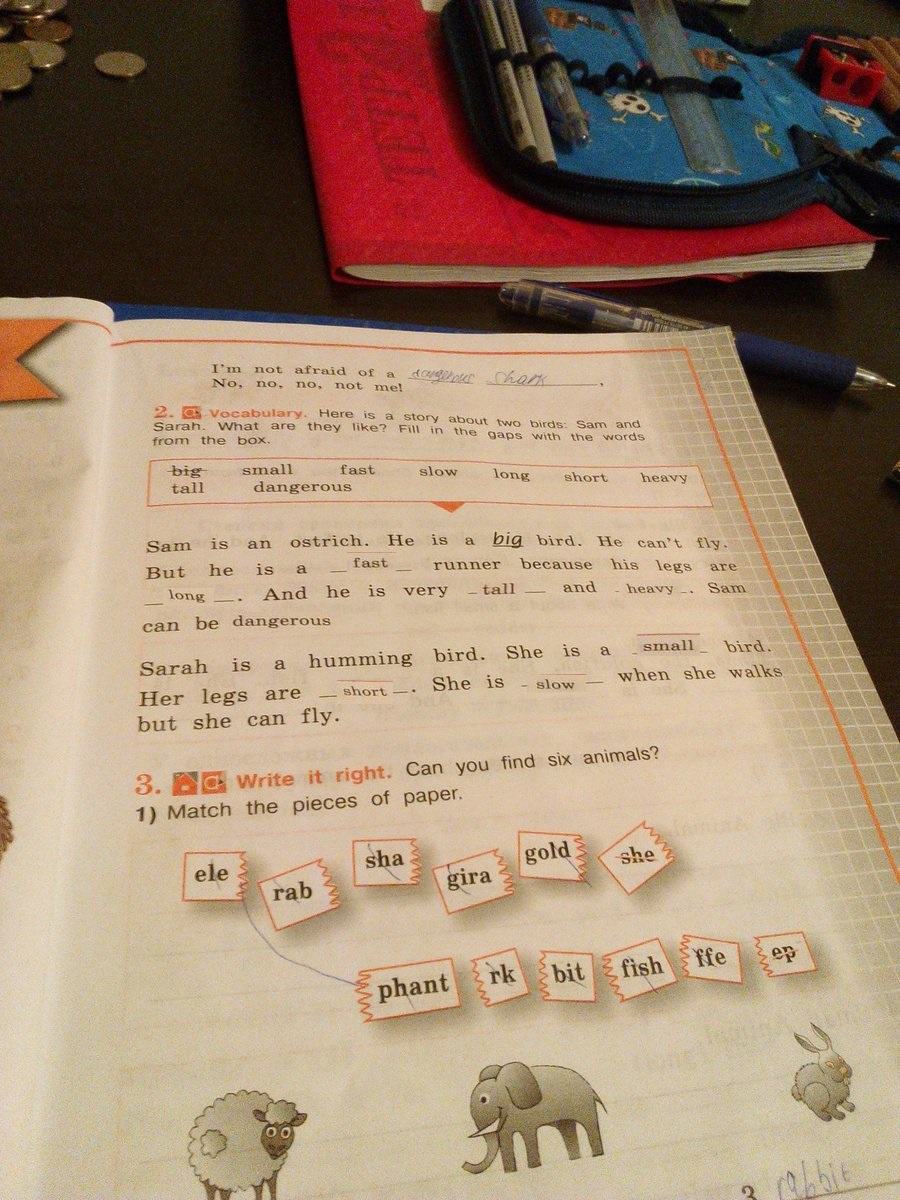 I'm not afraid of a dangerous shark,
No, no, no, not me!
2. Vocabulary. Here is a story about two birds: Sam and
Sarah. What are they like? Fill in the gaps with the words
from the box.
big small fast slow long short heavy
tall dangerous
Sam is an ostrich. He is a big bird. He can't fly.
But he is a fast runner because his legs are
long. And he is very tall and heavy. Sam
can be dangerous
Sarah is a humming bird. She is a small bird.
Her legs are short. She is slow when she walks
but she can fly.
3. Write it right. Can you find six animals?
1) Match the pieces of paper.
ele rab sha gira gold she
phant rk bit fish ffe ep
3 rabbit